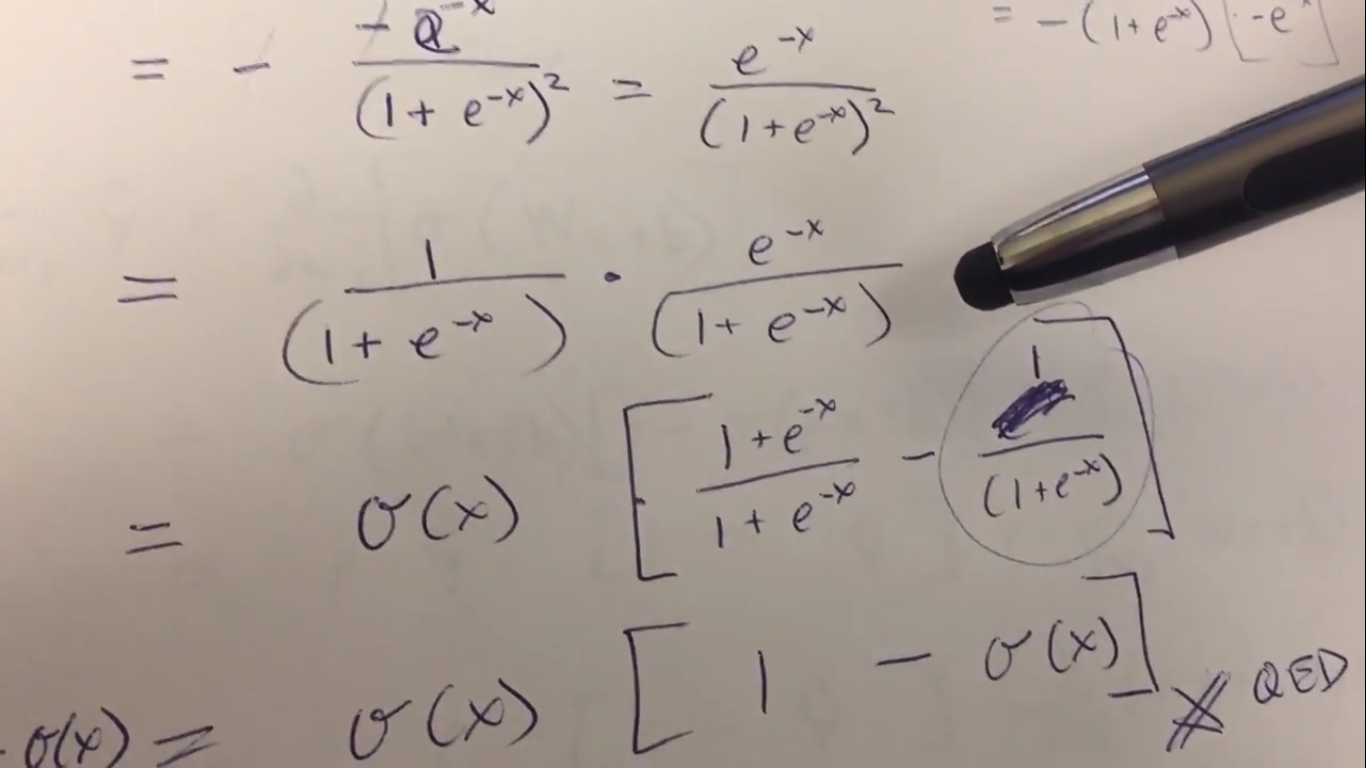 = - -e^-x / (1 + e^-x)^2 = e^-x / (1+e^-x)^2
= -(1+e^-x) [-e^-x]
= 1 / (1 + e^-x) · e^-x / (1 + e^-x)
= σ(x) [ 1+e^-x / 1 + e^-x - 1 / (1+e^-x) ]
σ(x) = σ(x) [ 1 - σ(x) ] QED